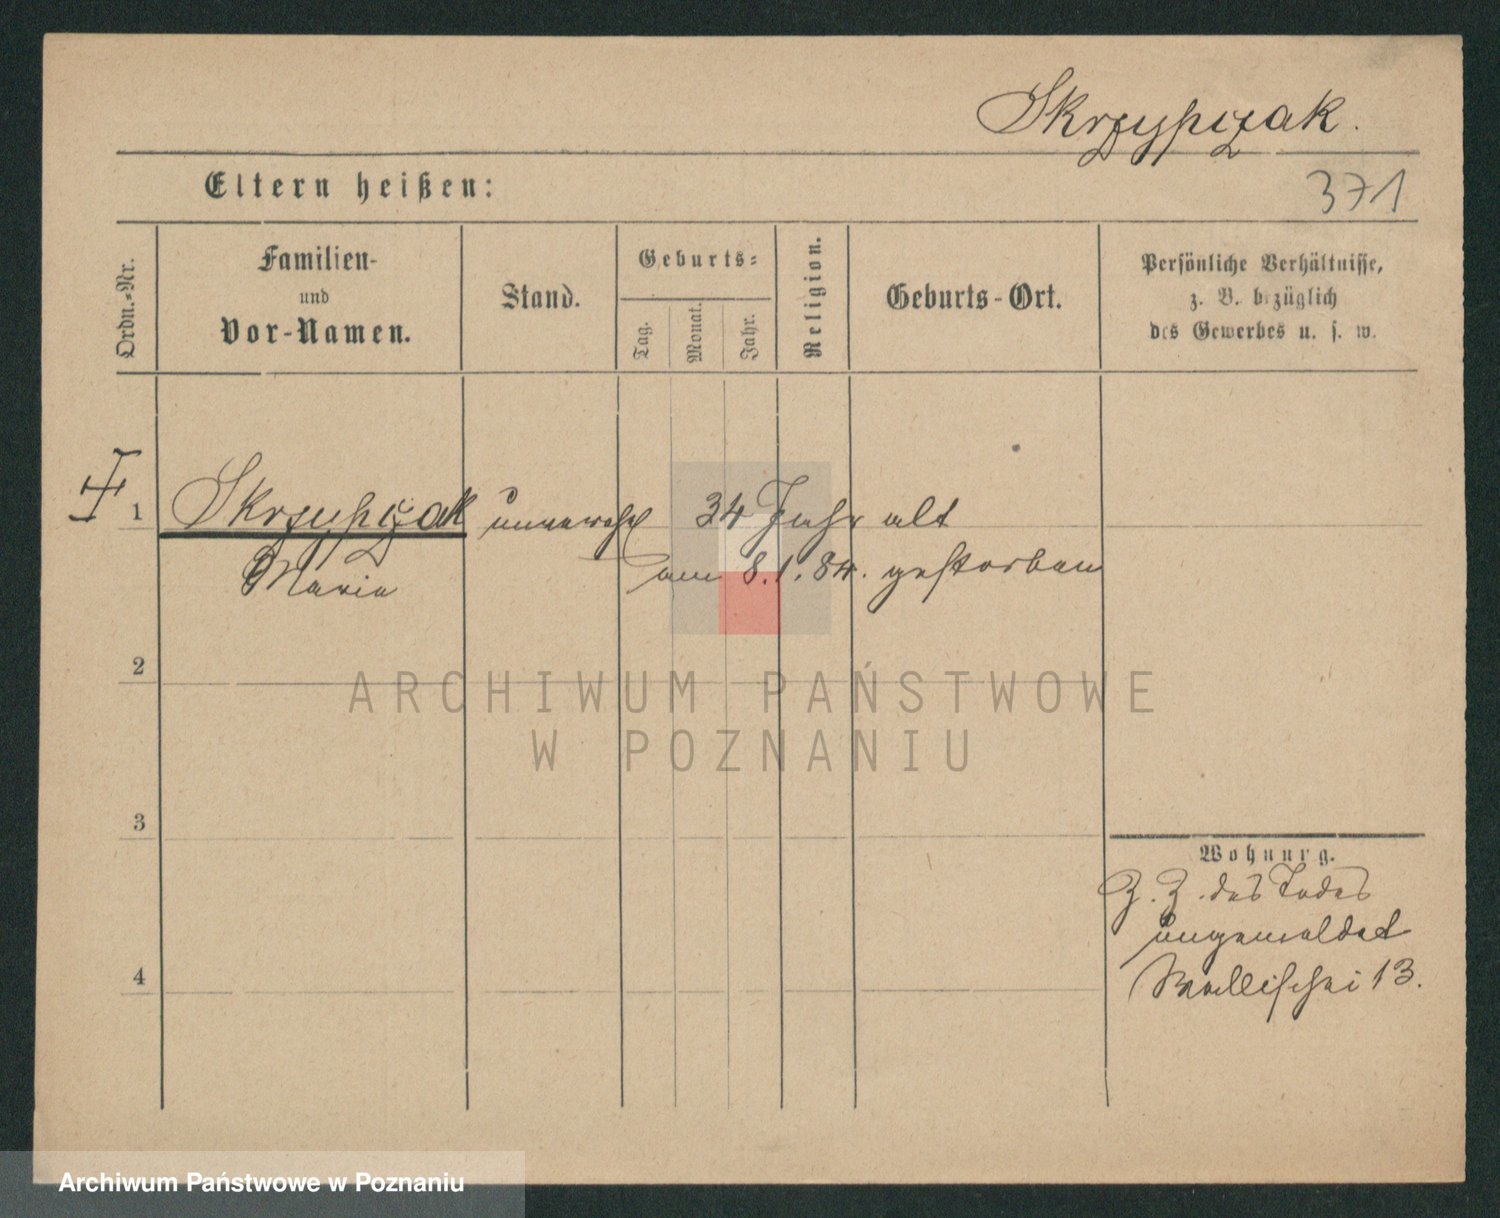 Skrzypczak.
Eltern heißen:
371
Ordn.-Nr.
Familien-
und
Vor-Namen.
Stand.
Geburts-
Tag.
Monat.
Jahr.
Religion.
Geburts-Ort.
Persönliche Verhältnisse,
z. B. bezüglich
des Gewerbes u. s. w.
1 Skrzypczak unverehl 34 Jahr alt
Maria am 8.1.84. gestorben
2
ARCHIWUM PAŃSTWOWE
W POZNANIU
3
Wohnung.
Z. Z. des Todes
ungemeldet
Wallischei 13.
4
Archiwum Państwowe w Poznaniu